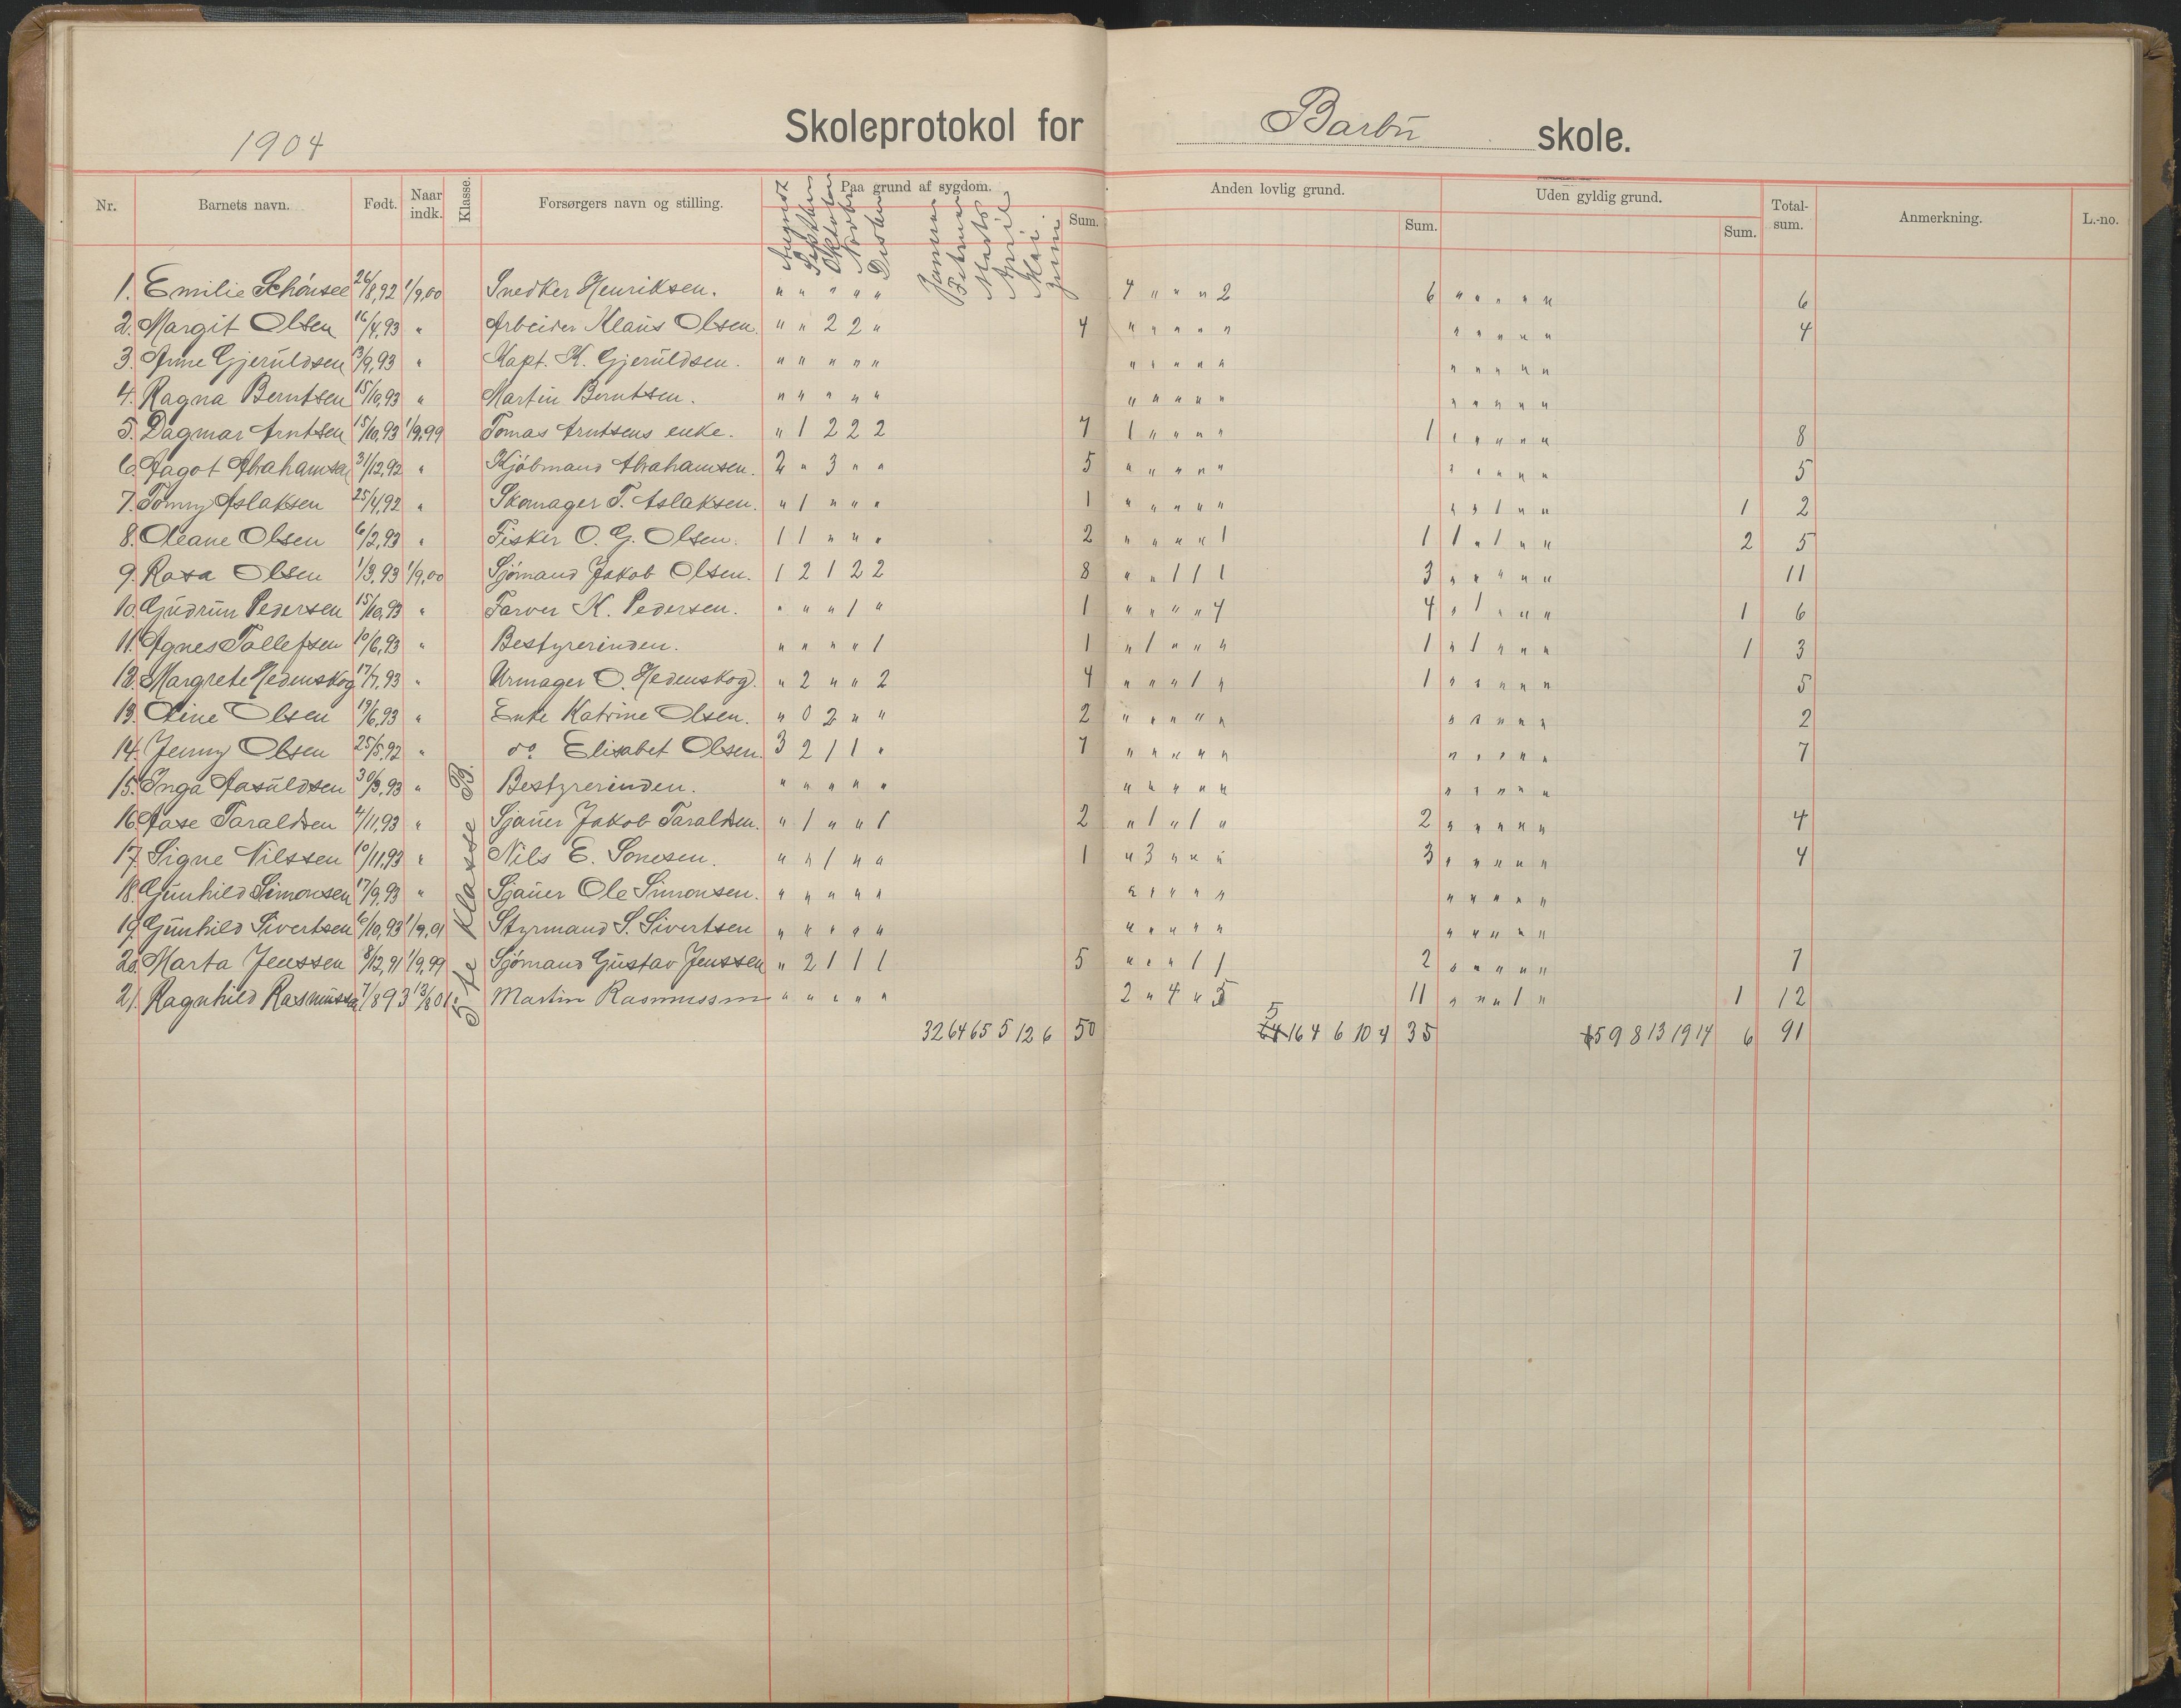 1904 Skoleprotokol for Barbu skole.
Nr. Barnets navn. Født. Naar indk. Klasse. Forsørgers navn og stilling. Paa grund af sygdom. Sum. Anden lovlig grund. Sum. Uden gyldig grund. Sum. Total-sum. Anmerkning. L.-no.
August Oktober Januar Februar Marts April Mai Juni
5te Klasse B.
1. Emilie Schönsee 26/8,92 1/9,00 Snedker Henriksen. " " " " " 4 " " " 2 6 " " " " " 6
2. Margit Olsen 16/4,93 " Arbeider Klaus Olsen. " " 2 2 " 4 " " " " " " " " " " 4
3. Anne Gjeruldsen 13/9,93 " Kapt. K. Gjeruldsen. " " " " " " " " " " " " " " "
4. Ragna Berntsen 15/10,93 " Martin Berntsen. " " " " " " " " " " " " " " "
5. Dagmar Arntsen 15/10,93 1/9,99 Tomas Arntsens enke. " 1 2 2 2 7 1 " " " " 1 " " " " " 8
6. Aagot Abrahamsen 31/12,92 " Kjøbmand Abrahamsen. 2 " 3 " " 5 " " " " " " " " " " 5
7. Tomny Aslaksen 25/4,92 " Skomager T. Aslaksen. " 1 " " " 1 " " " " " " " 1 " " 1 2
8. Oleane Olsen 6/2,93 " Fisker O. G. Olsen. 1 1 " " " 2 " " " " 1 1 1 " 1 " " 2 5
9. Rasa Olsen 1/3,93 1/9,00 Sjømand Jakob Olsen. 1 2 1 2 2 8 " " 1 1 1 3 " " " " " 11
10. Gudrun Pedersen 15/10,93 " Farver K. Pedersen. " " " 1 " 1 " " " " 4 4 " 1 " " " 1 6
11. Agnes Tallefsen 10/6,93 " Bestyrerinden. " " " " 1 1 " 1 " " " 1 " 1 " " " 1 3
12. Margrete Hedenskog 17/7,93 " Urmager O. Hedenskog. " 2 " " 2 4 " " " 1 " 1 " " " " " 5
13. Oline Olsen 19/6,93 " Enke Katrine Olsen. " 0 2 " " 2 " " " " " " " " " " 2
14. Jenny Olsen 25/5,92 " do Elisabet Olsen. 3 2 1 1 " 7 " " " " " " " " " 7
15. Inga Aasuldsen 30/3,93 " Bestyrerinden. " " " " " " " " " " " " " " "
16. Aase Taraldsen 4/11,93 " Sjauer Jakob Taraldsen. " 1 " " 1 2 " 1 " 1 " 2 " " " " " 4
17. Signe Nilssen 10/11,93 " Nils E. Sonesen. " " 1 " " 1 " 3 " " " 3 " " " " " 4
18. Gunhild Simonsen 17/9,93 " Sjauer Ole Simonsen. " " " " " " " " " " " " " " "
19. Gunhild Sivertsen 6/10,93 1/9,01 Styrmand S. Sivertsen " " " " " " " " " " " " " " "
20. Marta Jenssen 8/12,91 1/9,99 Sjømand Gustav Jenssen " 2 1 1 1 5 " " " 1 1 2 " " " " " 7
21. Ragnhild Rasmussen 7/8 93 13/8 01 Martin Rasmussen " " " " " 2 " 4 " 5 11 " " " 1 " 1 12
32 64 65 5 12 6 50 5 16 4 6 10 4 35 5 9 8 13 19 14 6 91